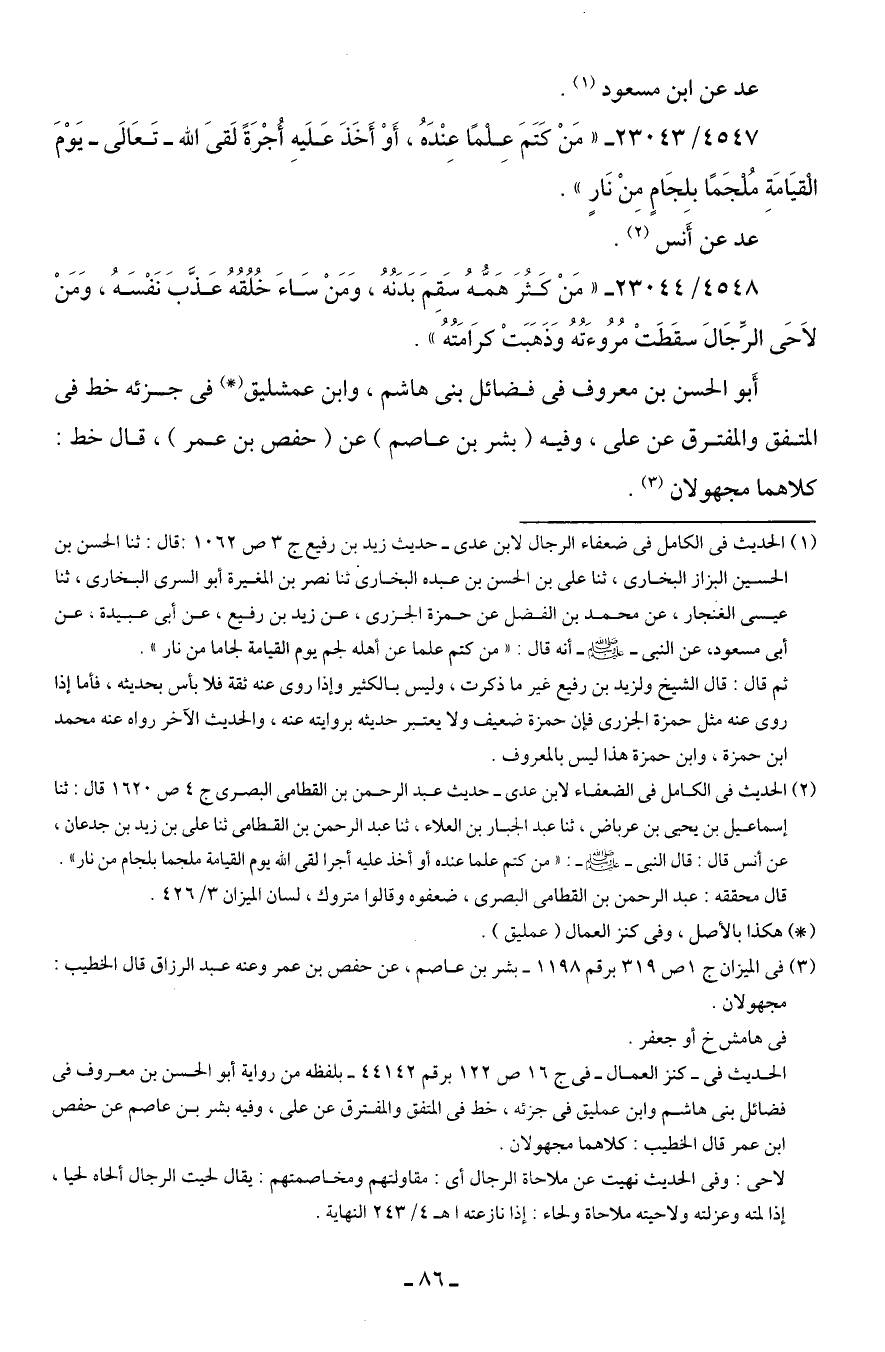 عد عن ابن مسعود (١) .
٤٥٤٧/ ٢٣٠٤٣ـ « مَنْ كَتَمَ عِلْمًا عِنْدَهُ ، أَوْ أَخَذَ عَلَيهِ أُجْرَةً لَقىَ الله ـ تَعَالَى ـ يَوْمَ
الْقيَامَةِ مُلْجَمًا بلِجَامٍ مِنْ نَارٍ » .
عد عن أَنس (٢) .
٤٥٤٨/ ٢٣٠٤٤ـ « مَنْ كَثُرَ هَمُّهُ سَقِمَ بَدَنُهُ ، وَمَنْ سَاءَ خُلُقُهُ عَذَّبَ نَفْسَهُ ، وَمَنْ
لاَحَى الرِّجَالَ سقَطَتْ مُرُوءَتُهُ وَذَهَبَتْ كرَامَتُهُ » .
أَبو الحسن بن معروف فى فضائل بنى هاشم ، وابن عمشليق(*) فى جزئه خط فى
المتفق والمفترق عن على ، وفيه ( بشر بن عاصم ) عن ( حفص بن عمر ) ، قال خط :
كلاهما مجهولان (٣) .
(١) الحديث فى الكامل فى ضعفاء الرجال لابن عدى ـ حديث زيد بن رفيع ج ٣ ص ١٠٦٢ :قال : ثنا الحسن بن
الحسين البزاز البخارى ، ثنا على بن الحسن بن عبده البخارى ثنا نصر بن المغيرة أبو السرى البخارى ، ثنا
عيسى الغنجار ، عن محمد بن الفضل عن حمزة الجزرى ، عن زيد بن رفيع ، عن أبى عبيدة ، عن
أبى مسعود، عن النبى ـ ﷺ ـ أنه قال : « من كتم علما عن أهله لجم يوم القيامة لجاما من نار » .
ثم قال : قال الشيخ ولزيد بن رفيع غير ما ذكرت ، وليس بالكثير وإذا روى عنه ثقة فلا بأس بحديثه ، فأما إذا
روى عنه مثل حمزة الجزرى فإن حمزة ضعيف ولا يعتبر حديثه بروايته عنه ، والحديث الآخر رواه عنه محمد
ابن حمزة ، وابن حمزة هذا ليس بالمعروف .
(٢) الحديث فى الكامل فى الضعفاء لابن عدى ـ حديث عبد الرحمن بن القطامى البصرى ج ٤ ص ١٦٢٠ قال : ثنا
إسماعيل بن يحيى بن عرباض ، ثنا عبد الجبار بن العلاء ، ثنا عبد الرحمن بن القطامى ثنا على بن زيد بن جدعان ،
عن أنس قال : قال النبى ـ ﷺ ـ : « من كتم علما عنده أو أخذ عليه أجرا لقى الله يوم القيامة ملجما بلجام من نار» .
قال محققه : عبد الرحمن بن القطامى البصرى ، ضعفوه وقالوا متروك ، لسان الميزان ٣/ ٤٢٦ .
(*) هكذا بالأصل ، وفى كنز العمال ( عمليق ) .
(٣) فى الميزان ج ١ص ٣١٩ برقم ١١٩٨ ـ بشر بن عاصم ، عن حفص بن عمر وعنه عبد الرزاق قال الخطيب :
مجهولان .
فى هامش خ أو جعفر .
الحديث فى ـ كنز العمال ـ فى ج ١٦ ص ١٢٢ برقم ٤٤١٤٢ ـ بلفظه من رواية أبو الحسن بن معروف فى
فضائل بنى هاشم وابن عمليق فى جزئه ، خط فى المتفق والمفترق عن على ، وفيه بشر بن عاصم عن حفص
ابن عمر قال الخطيب : كلاهما مجهولان .
لاحى : وفى الحديث نهيت عن ملاحاة الرجال أى : مقاولتهم ومخاصمتهم : يقال لحيت الرجال ألحاه لحيا ،
إذا لمته وعزلته ولاحيته ملاحاة ولحاء : إذا نازعته ا هـ ٤/ ٢٤٣ النهاية .
ـ ٨٦ ـ